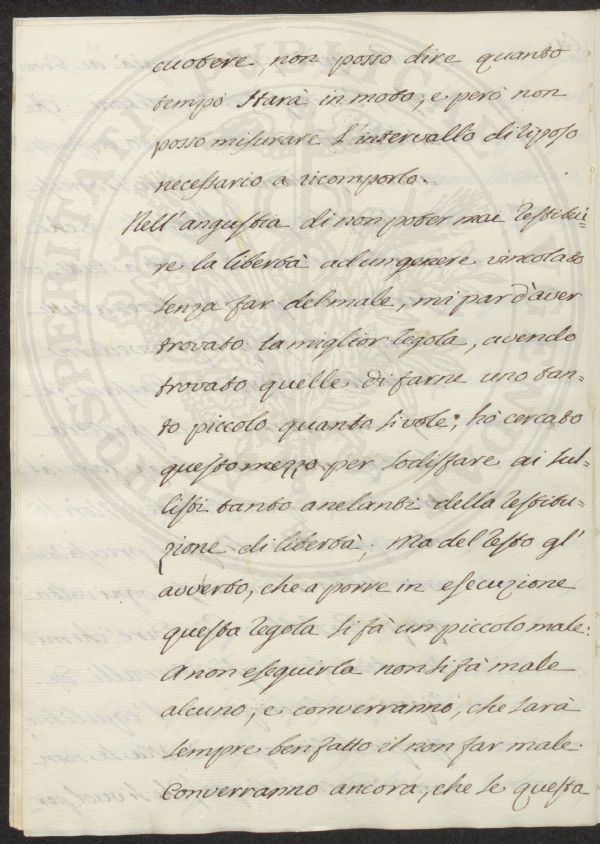 cuotere, non posso dire quanto
tempo starà in moto, e però non
posso misurare l'intervallo di riposo
necessario a ricomporlo.
Nell'angustia di non poter mai restitui=
re la libertà ad un genere vincolato
senza far del male, mi par d'aver
trovato la miglior regola, avendo
trovato quelle di farne uno tan=
to piccolo quanto si vole; hò cercato
questo mezzo per sodisfare ai sul=
listi tanto anelanti della restitu=
zione di libertà; Ma del resto gl'
avverto, che a porre in esecuzione
questa regola si fà un piccolo male:
A non eseguirla non si fà male
alcuno, e converranno, che sarà
sempre ben fatto il non far male.
Converranno ancora, che se questa
PROSPERITATI PUBLICAE AUGENDAE